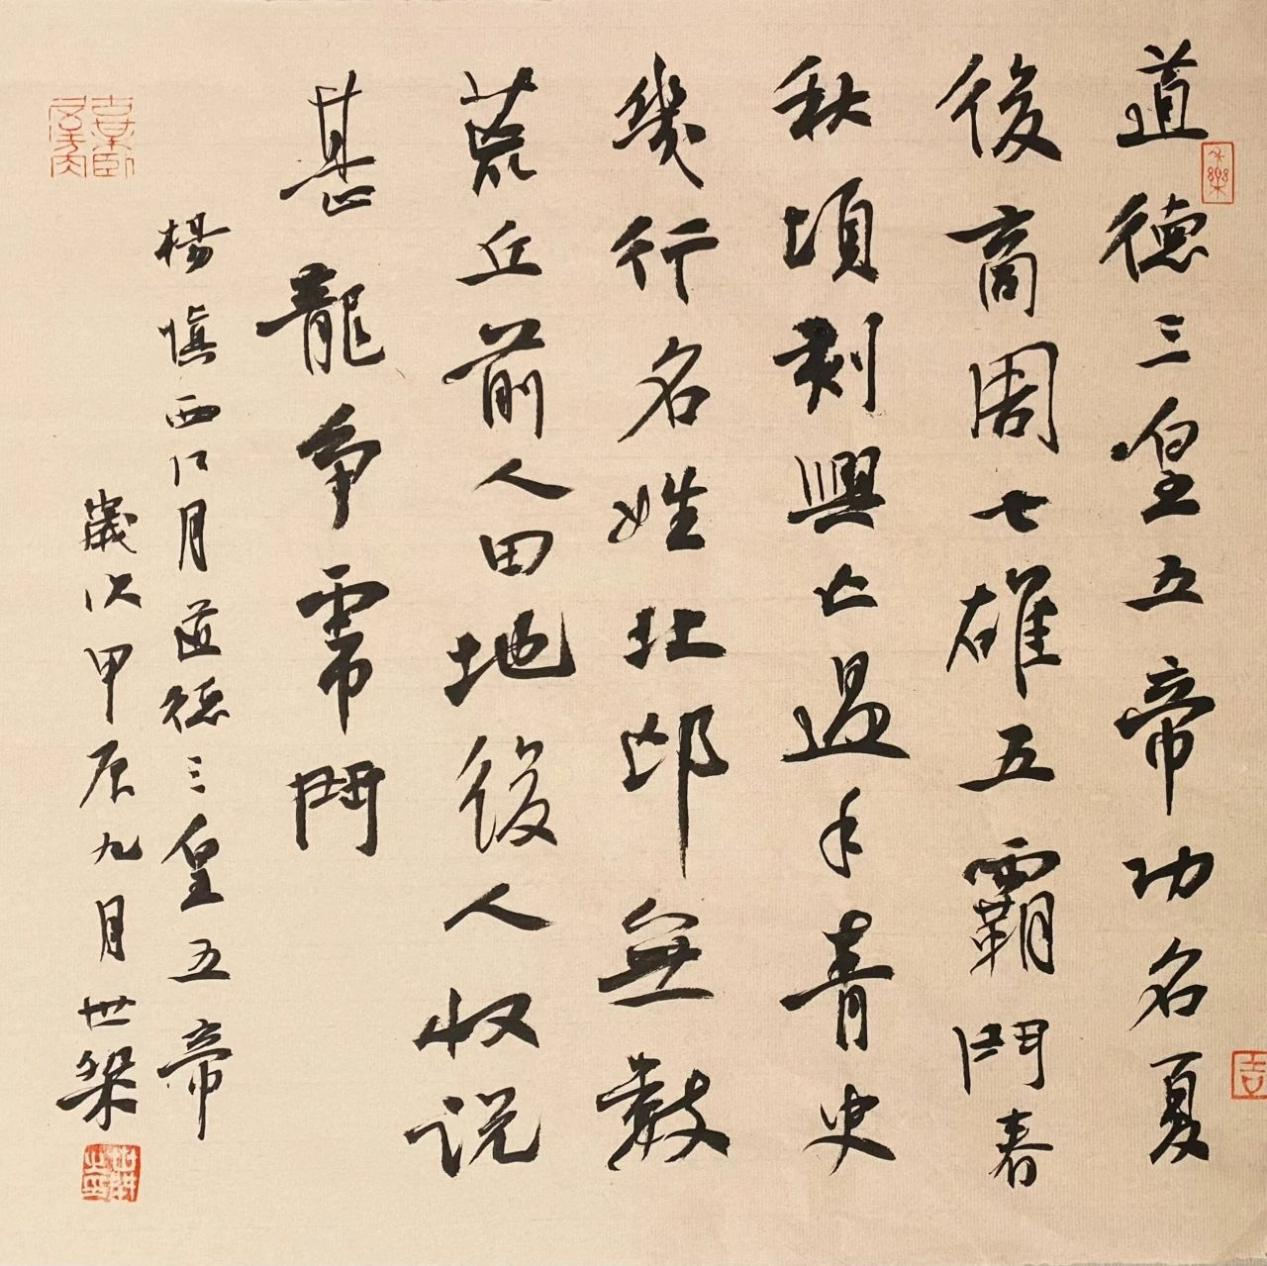 道德三皇五帝功名夏
後商周七雄五霸鬥春
秋頃刻興亡過手青史
幾行名姓北邙無數
荒丘前人田地後人收说
甚龍争虎鬥
楊慎西江月道德三皇五帝
歲次甲辰九月世桀